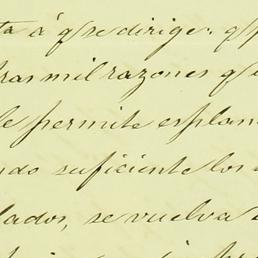 ta á q se dirige; q p
tras mil razones q e
le permite esplana
ndo suficiente los
lados, se vuelva